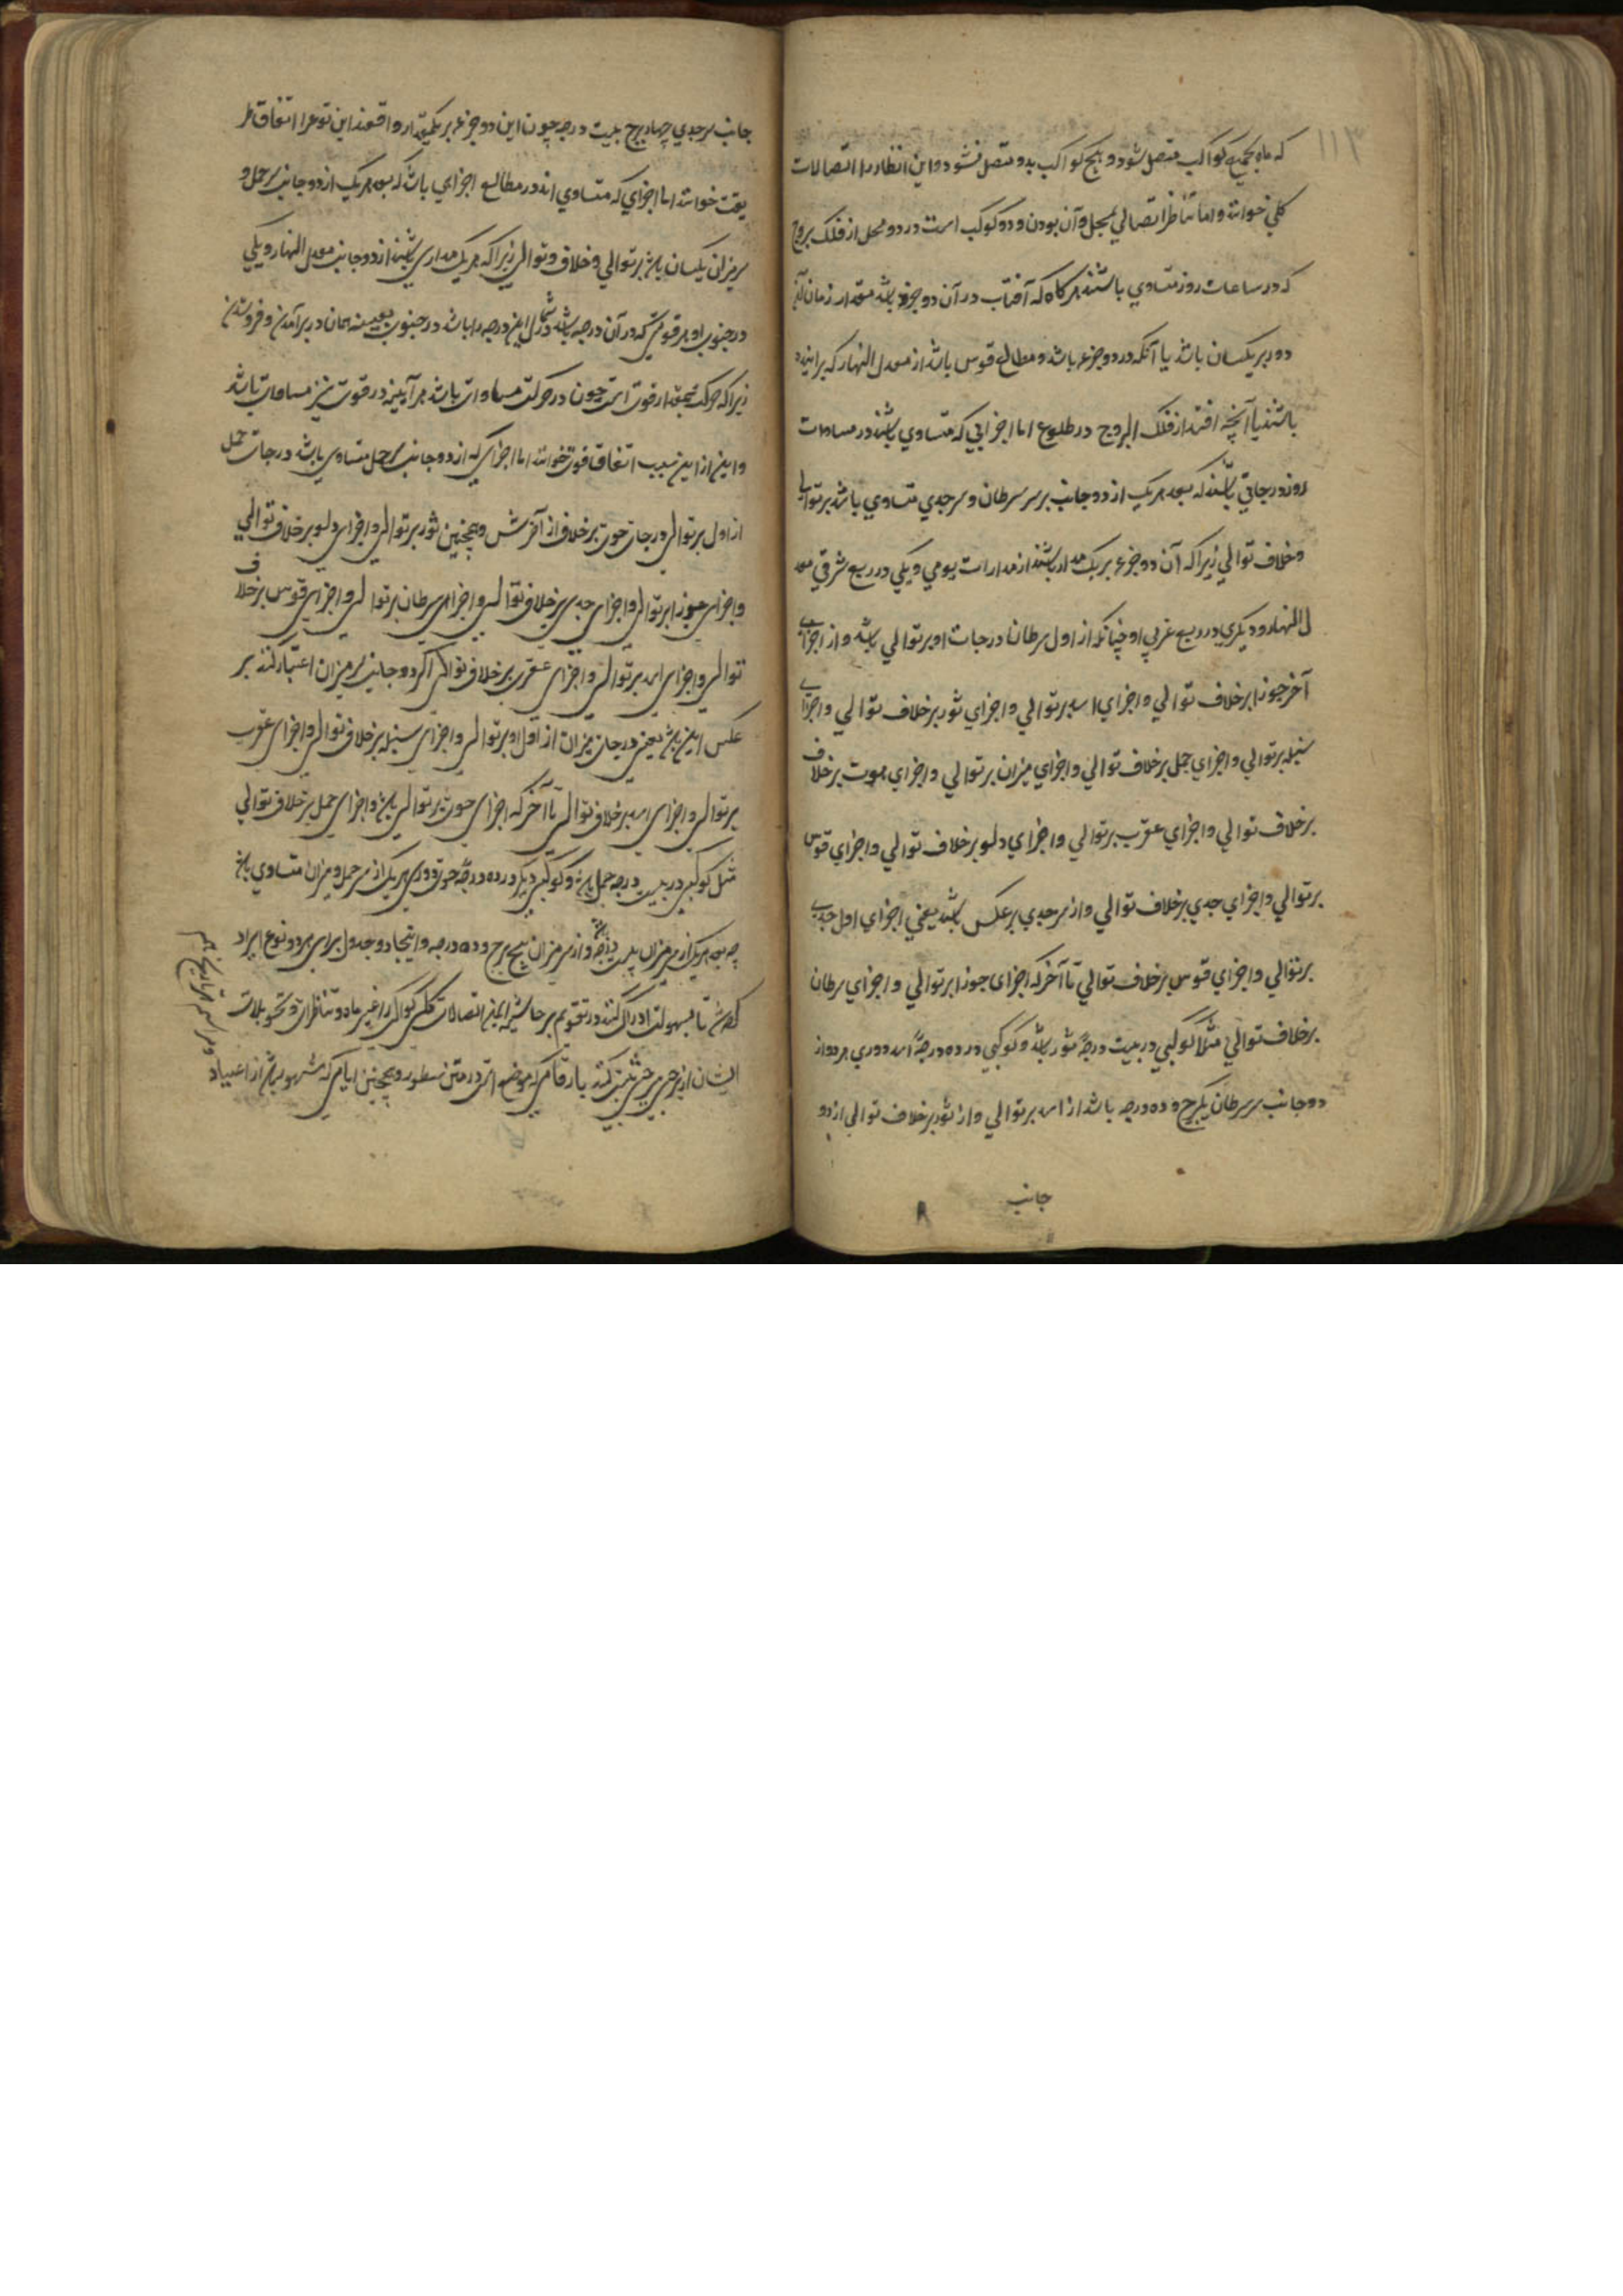 ۱۱۳
که ماه بجمیع کواکب متصل شود و هیچ کواکب بدو متصل نشود و این انظار را اتصالات
کلی خوانند و اما تناظر اتصالی بمحل و آن بودن دو کوکب است در دو محل از فلک بروج
که در ساعات روز متساوی باشند هرکاه که آفتاب در آن دو جزو باشد مقدار زمان
دو دیر یکسان باشد یا آنکه در دو جزء باشد و مطالع قوس باشد از معدل النهار که برایند
باشند یا آنچه افتد از فلک البروج در طلوع اما اجزایی که متساوی باشند در مساوات
روز درجاتی باشند که بعد هر یک از دو جانب بر سر سرطان و سر جدی متساوی باشد بر توالی
و خلاف توالی زیرا که آن دو جزء بر یک مدار باشند از مدارات یومی و یکی در ربع شرقی معد
ل النهار و دیکری در ربع غربی او چنانکه از اول سرطان درجات او بر توالی باشد و از اجزای
آخر جوزا بر خلاف توالی و اجزای اسد بر توالی و اجزای ثور بر خلاف توالی و اجزای
سنبله بر توالی و اجزای حمل بر خلاف توالی و اجزای میزان بر توالی و اجزای حوت بر خلاف
بر خلاف توالی و اجزای عقرب بر توالی و اجزای دلو بر خلاف توالی و اجزای قوس
بر توالی و اجزای جدی بر خلاف توالی و از سر جدی بر عکس باشد یعنی اجزای اول جدی
بر توالی و اجزای قوس بر خلاف توالی تا آخر که اجزای جوزا بر توالی و اجزای سرطان
بر خلاف توالی مثلا کوکبی در بیست درجهٔ ثور باشد و کوکبی در ده درجهٔ اسد دوری هر دو از
دو جانب سر سرطان یکبرج و ده درجه باشد از اسد بر توالی و از ثور بر خلاف توالی از دو
جانب
جانب سر جدی چهار برج بیست درجه چون این دو جزء بر یکمقدار واقعند این نوع را اتفاق طر
یقت خوانند اما اجزای که متساوی اند در مطالع اجزای باشد که بعد هر یک از دو جانب سر حمل و
سر میزان یکسان باشد بر توالی و خلاف و توالی زیرا که هر یک مداری باشند از دو جانب معدل النهار و یکی
در جنوب او هر قوسی که در آن درجه باشد در شمال این درجه را باشد در جنوب بعینه همان در برآمدن و فروشدن
زیرا که حرکت بمقدار قوت است چون در حرکت مساوات باشد هر آینه در قوت نیز مساوات باشد
و این از این سبب اتفاق قوت خوانند اما اجزای که از دو جانب سر حمل متساوی باشد درجات حمل
از اول بر توالی درجات حوت بر خلاف از آخرش و همچنین ثور بر توالی و اجزای دلو بر خلاف توالی
و اجزای جوزا بر توالی و اجزای جدی بر خلاف توالی و اجزای سرطان بر توالی و اجزای قوس بر خلاف
توالی و اجزای اسد بر توالی و اجزای عقرب بر خلاف توالی اکر دو جانب سر میزان اعتبار کنند بر
عکس این باشد یعنی درجات میزان از اول او بر توالی و اجزای سنبله بر خلاف توالی و اجزای عقرب
بر توالی و اجزای اسد بر خلاف توالی تا آخر که اجزای حوت بر توالی باشد و اجزای حمل بر خلاف توالی
مثل کوکبی در بیست درجه حمل باشد و کوکبی دیکر در ده درجه حوت دوری هر یک از سر حمل و میزان متساوی باشد
چه بعد هر یک از سر میزان بیست درجه باشد و از سر میزان پنج برج و ده درجه و اینجا دو جدول برای هر دو نوع ایراد
کردیم تا بسهولت ادراک کنند در تقویم بر حاشیه ایمن اتصالات کلی کواکب را غیر ماه و تناظرات و تحویلات
ایشان از برجی ببرجی ثبت کنند با رقام که موضع است در متن مسطور و همچنین ایامی که مشهور باشد از اعیاد